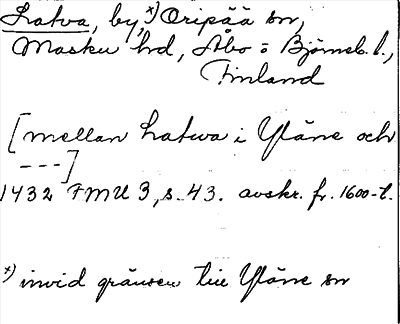 Latva, by, x) Oripää sn,
Masku hd, Åbo o Björneb. l.,
Finland
[mellan Latwa i Yläne och
---]
1432 FMU 3, s. 43. avskr. fr. 1600-t.
x) invid gränsen till Yläne sn